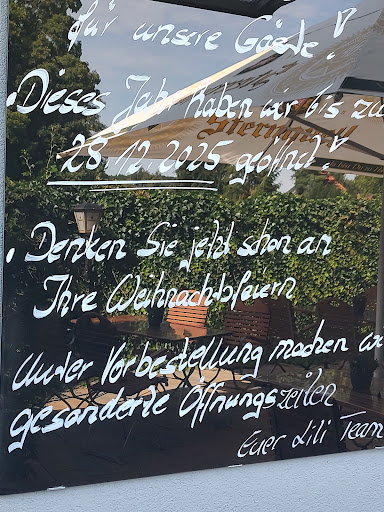 für unsere Gäste!
• Dieses Jahr haben wir bis zu
28.12.2025 geöffnet!
• Denken Sie jetzt schon an
Ihre Weihnachtsfeiern
Unter Vorbestellung machen wi
gesonderte Öffnungszeiten
Euer Lili Team
Sternburg